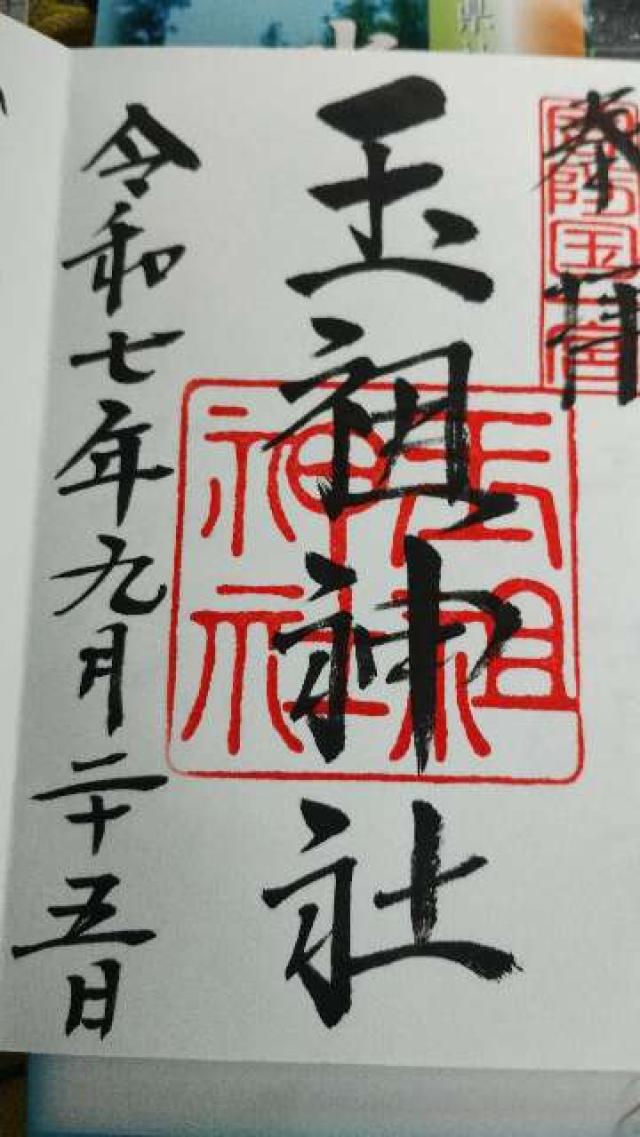 奉拝
周防国一宮
玉祖神社
玉祖神社
令和七年九月二十五日